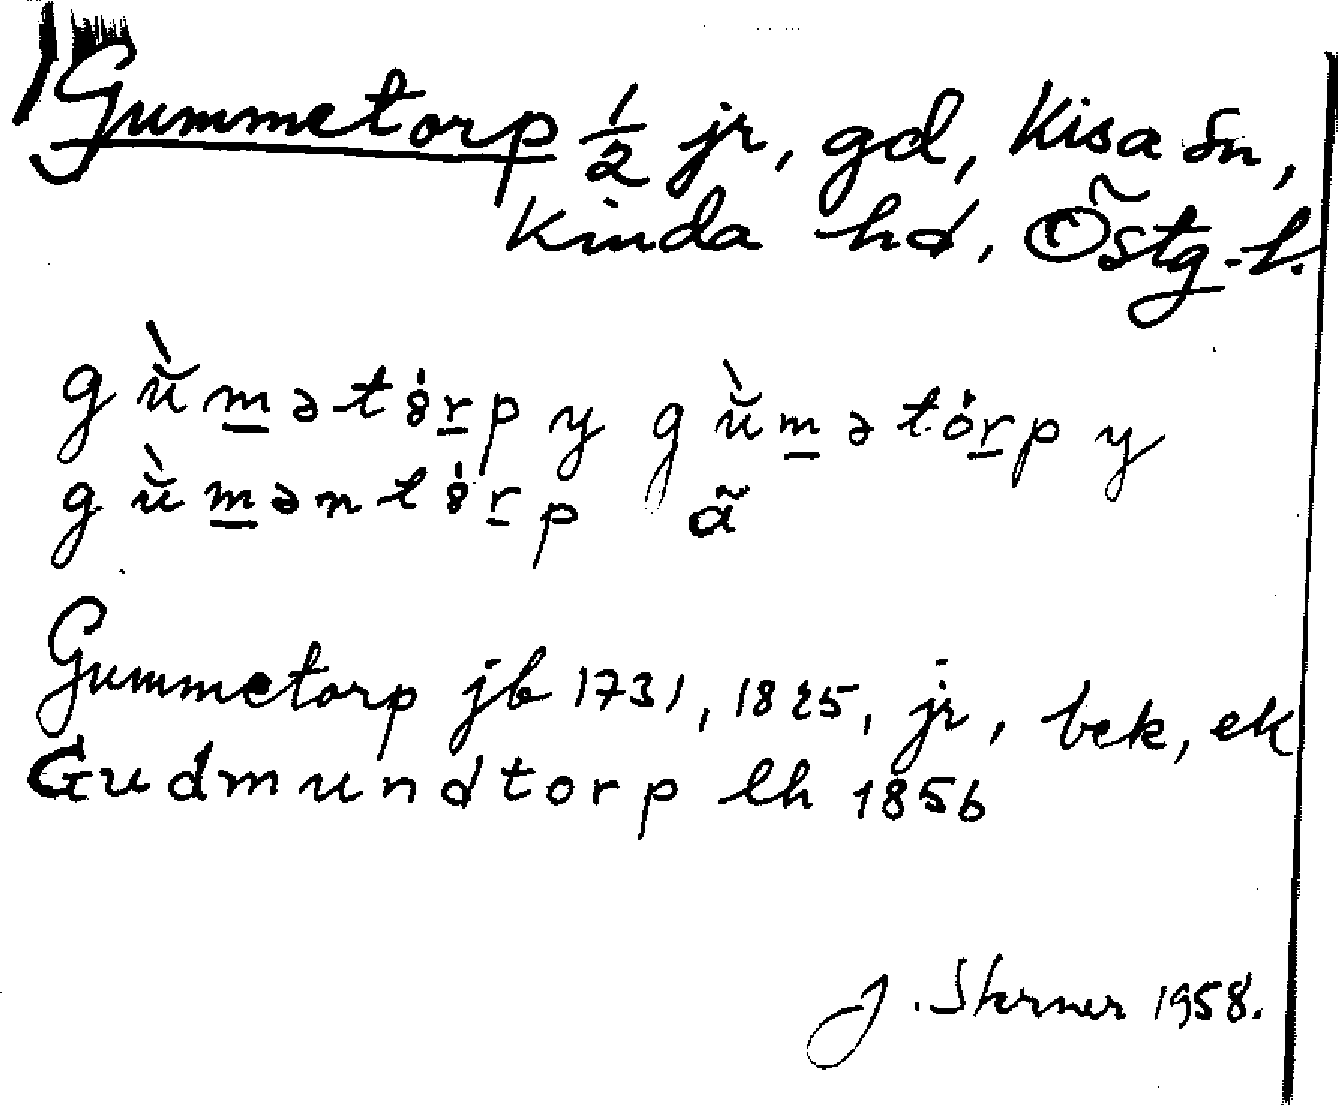 Gummetorp ½ jr, gd, Kisa sn,
Kinda hd, Östg. l.
gùm̲ətȯr̲p y gùm̲ətȯr̲p y
gùm̲əntȯr̲p ä
Gummetorp jb 1731, 1825, jr, bek, ek
Gudmundtorp lh 1856
J. Sterner 1958.